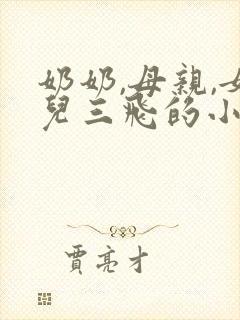 奶奶,母親,女
兒三飛的小
賈亮才